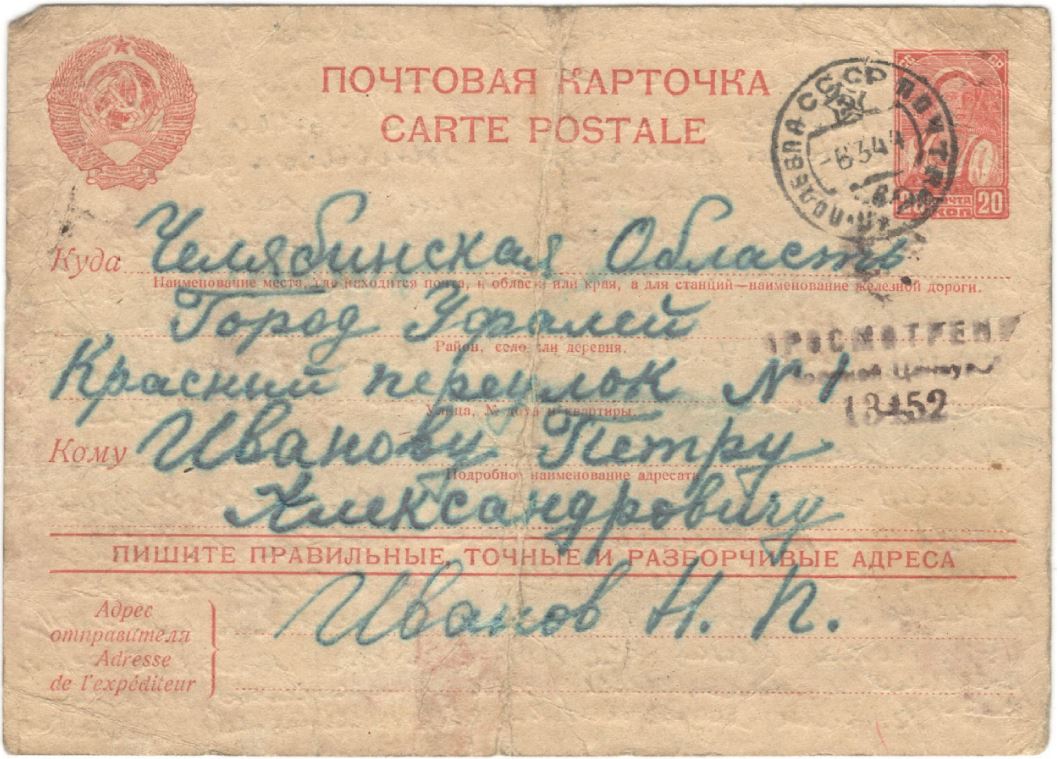 ПОЧТОВАЯ КАРТОЧКА
CARTE POSTALE
СССР ПОЧТА
ПОЧТА
20 КОП 20
Куда Челябинская Область
Наименование места, где находится почта, и области или края, а для станций—наименование железной дороги.
Город Уфалей
Район, село или деревня.
Красный переулок N 1
Улица, № дома и квартиры.
13452
Кому Иванову Петру
Подробное наименование адресата
Александровичу
ПИШИТЕ ПРАВИЛЬНЫЕ, ТОЧНЫЕ И РАЗБОРЧИВЫЕ АДРЕСА
Иванов Н. П.
Адрес
отправителя
Adresse
de l'expéditeur